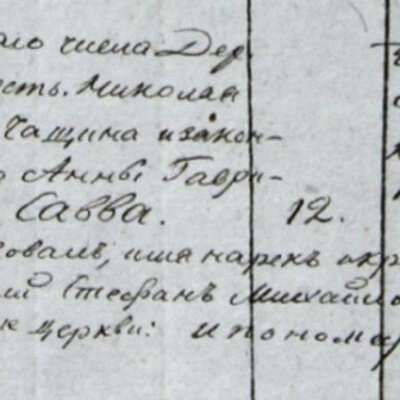 аго числа Дер
есть. Николай
Чащина и закон-
о Анны Гаври-
Савва. 12.
овалъ, имя нарекъ окр
Стефанъ Михайло
церкви: и пономар